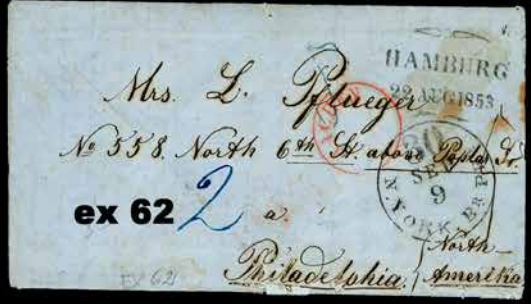 HAMBURG
22 AUG 1853
Mrs. L. Pflueger
No 558. North 6th St. above Poplar St.
30
SEP
9
N. YORK BR. P
ex 62
2
a
Philadelphia.
North
Amerika
EX 62